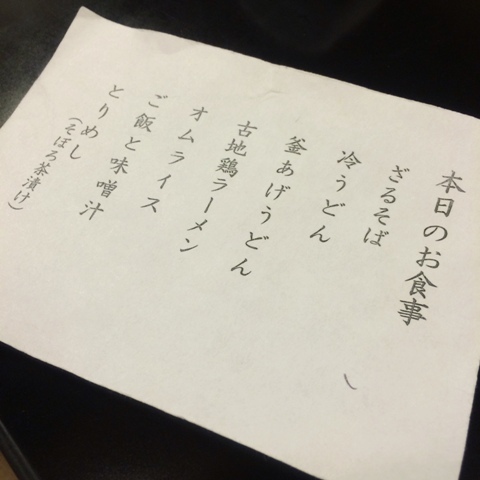 本日のお食事
ざるそば
冷うどん
釜あげうどん
古地鶏ラーメン
オムライス
ご飯と味噌汁
とりめし
(そぼろ茶漬け)